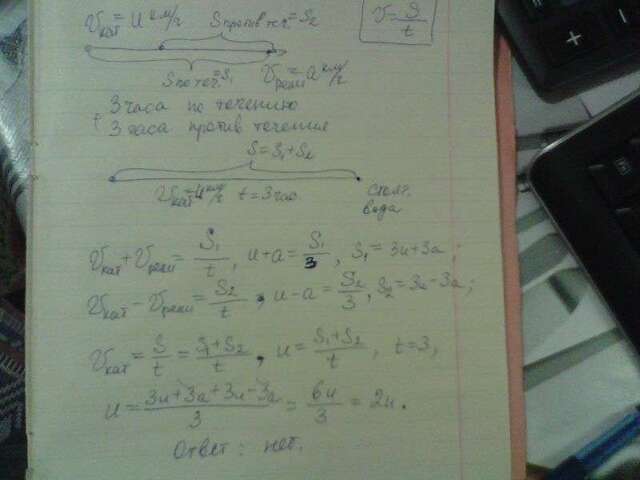 V кат = u км/ч S против теч = S2
V = S/t
S по теч = S1 V реки = a км/ч
3 часа по течению
3 часа против течения
S = S1 + S2
V кат = u км/ч t = 3 час стоят. вода
V кат + V реки = S1/t, u + a = S1/3, S1 = 3u + 3a;
V кат – V реки = S2/t, u – a = S2/3, S2 = 3u – 3a;
V кат = S/t = S1 + S2/t, u = S1 + S2/t, t = 3,
u = 3u + 3a + 3u – 3a/3 = 6u/3 = 2u.
Ответ: нет.